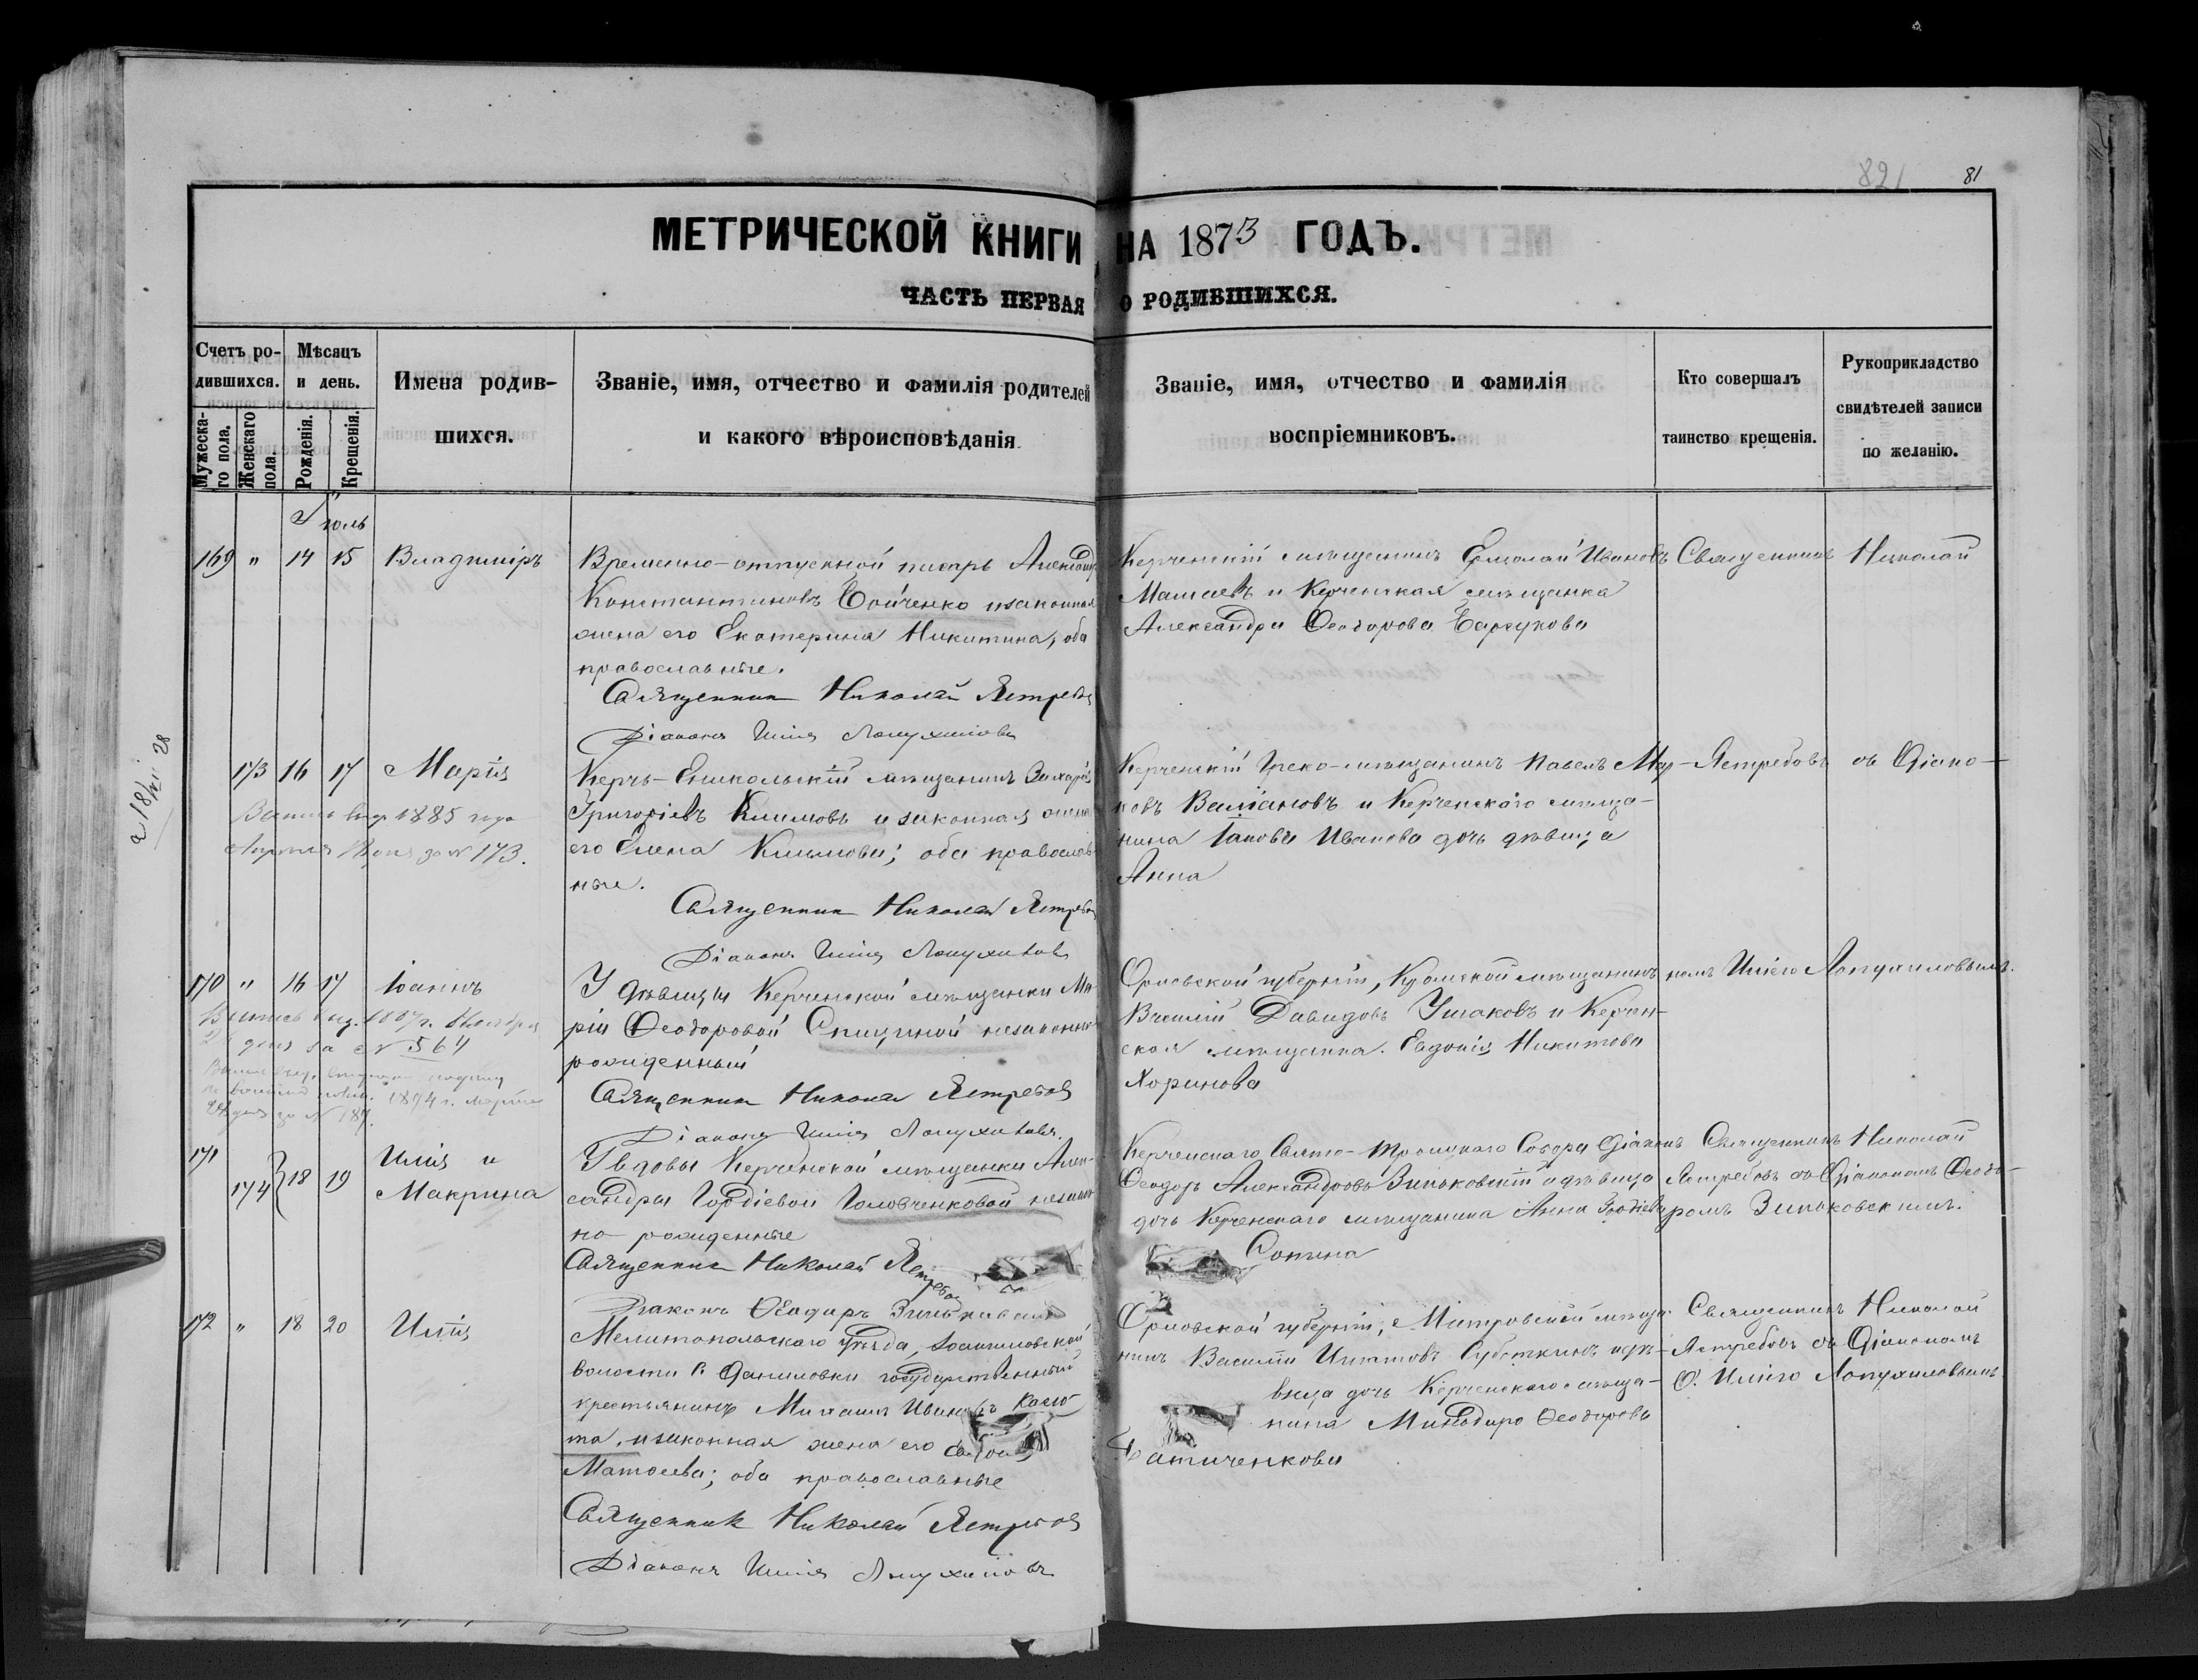 821 81
МЕТРИЧЕСКОЙ КНИГИ НА 1873 ГОДЪ.
ЧАСТЬ ПЕРВАЯ О РОДИВШИХСЯ.
Счетъ ро-
дившихся.
Мужеска-
го пола.
Женскаго
пола.
Мѣсяцъ
и день.
Рожденія.
Крещенія.
Имена родив-
шихся.
Званіе, имя, отчество и фамилія родителей
и какого вѣроисповѣданія
Званіе, имя, отчество и фамилія
воспріемниковъ.
Кто совершалъ
таинство крещенія.
Рукоприкладство
свидѣтелей записи
по желанію.
Іюль
169 " 14 15 Владиміръ
Временно-отпускной писарь Александръ
Константиновъ Бойченко и законная
жена его Екатерина Никитина, оба
православные.
Священникъ Николай Ястребовъ
Діаконъ Илія Лопухиновъ
Керченскій мѣщанинъ Ермолай Ивановъ
Мамаевъ и Керченская мѣщанка
Александра Ѳеодорова Барсукова
Священникъ Николай
173 16 17 Марія
1885 года
за № 173.
Керчь-Еникольскій мѣщанинъ Захарій
Григоріевъ Климовъ и законная жена
его Елена Климова; оба православ-
ные.
Священникъ Николай Ястребовъ
Діаконъ Илія Лопухиновъ
Керченскій Греко-мѣщанинъ Павелъ Мар-
ковъ и Керченскаго мѣща-
нина Іакова Иванова дочь дѣвица
Анна
Ястребовъ съ Діако-
170 " 16 17 Іоаннъ
дня за № 564
1894 г. Марта
У дѣвицы Керченской мѣщанки Ма-
ріи Ѳеодоровой Спициной незаконно-
рожденный
Священникъ Николай Ястребовъ
Діаконъ Илія Лопухиновъ.
Орловской губерніи, Кромской мѣщанинъ
Василій Давидовъ Ушаковъ и Керчен-
ская мѣщанка. Евдокія Никитова
Хоринова
номъ Иліею Лопухиновымъ.
171 174 18 19 Илія и
Макрина
У вдовы Керченской мѣщанки Алек-
сандры Гордіевой Головченковой незакон-
но-рожденные
Священникъ Николай Ястребовъ
Діаконъ Ѳеодоръ Зиньковскій
Керченскаго Свято-Троицкаго Собора Діаконъ
Ѳеодоръ Александровъ Зиньковскій и дѣвица
дочь Керченскаго мѣщанина Анна Гордіева
Сопина
Священникъ Николай
Ястребовъ съ Діакономъ Ѳеодо-
ромъ Зиньковскимъ.
172 " 18 20 Илія
Мелитопольскаго уѣзда,
волости с. Даниловки государственный
крестьянинъ Михаилъ Ивановъ Косю-
та, и законная жена его
Матѳеева; оба православные
Священникъ Николай Ястребовъ
Діаконъ Илія Лопухиновъ
Орловской губерніи, мѣща-
нинъ Василій Игнатовъ Суботкинъ и дѣ-
вица дочь Керченскаго мѣща-
нина Минодора Ѳеодорова
Священникъ Николай
Ястребовъ съ Діакономъ
О. Иліею Лопухиновымъ